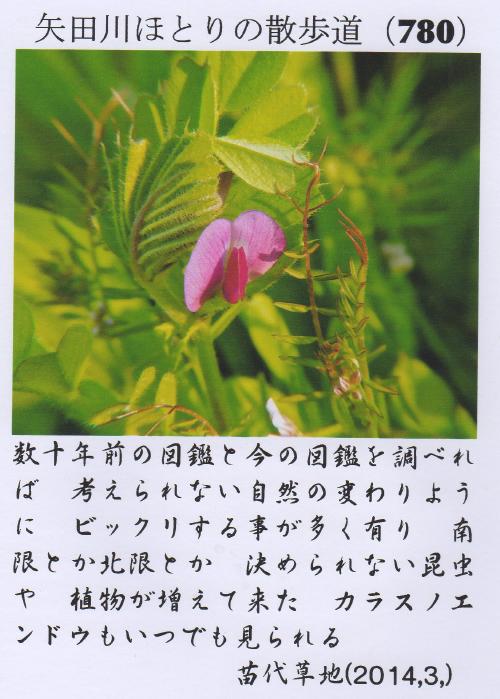 矢田川ほとりの散歩道（780）
数十年前の図鑑と今の図鑑を調べれ
ば　考えられない自然の変わりよう
に　ビックリする事が多く有り　南
限とか北限とか　決められない昆虫
や　植物が増えて来た　カラスノエ
ンドウもいつでも見られる
苗代草地(2014,3,)